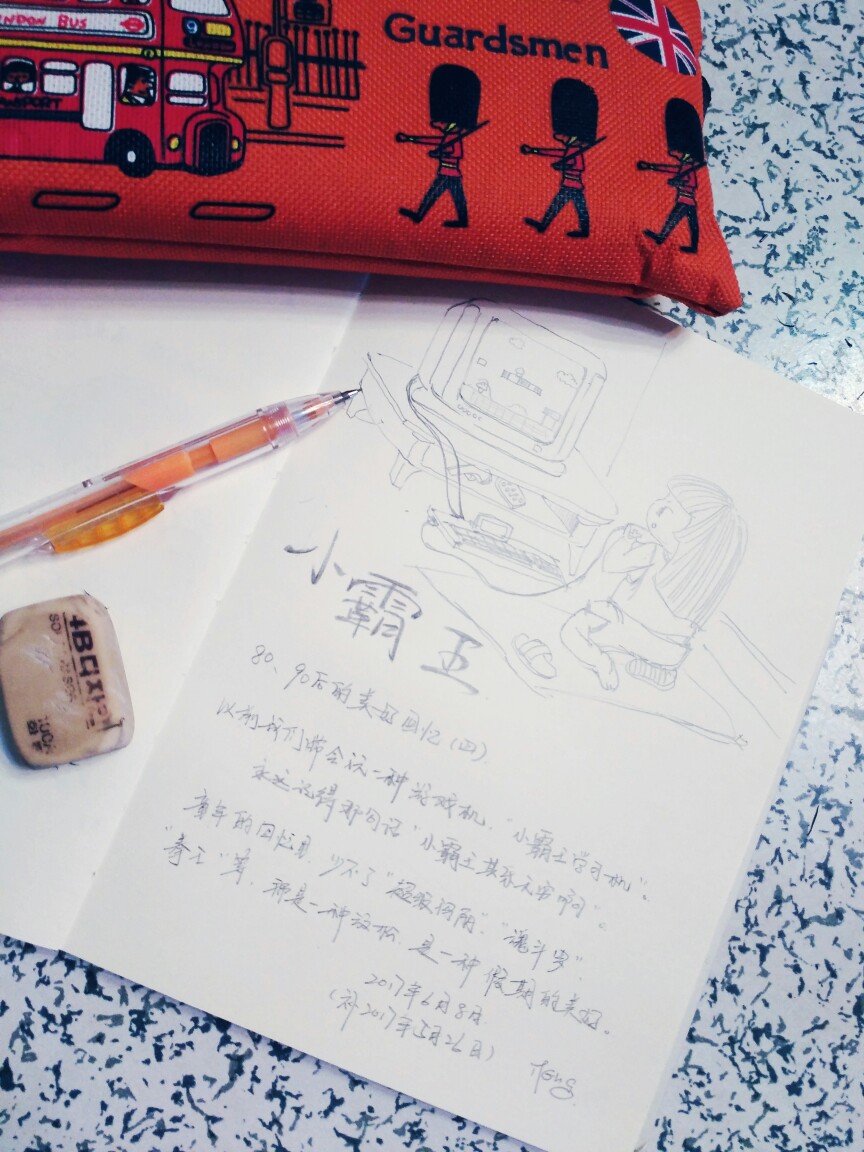 LONDON BUS
9
Guardsmen
小霸王
80、90后的美好回忆(四)
以前我们都会玩一种游戏机,"小霸王学习机"。
永远记得那句话"小霸王其乐无穷啊"。
青年的回忆里,少不了"超级玛丽","魂斗罗",
等,那是一种放松,是一种假期的美好。
2017年6月8日
(补2017年5月26日)